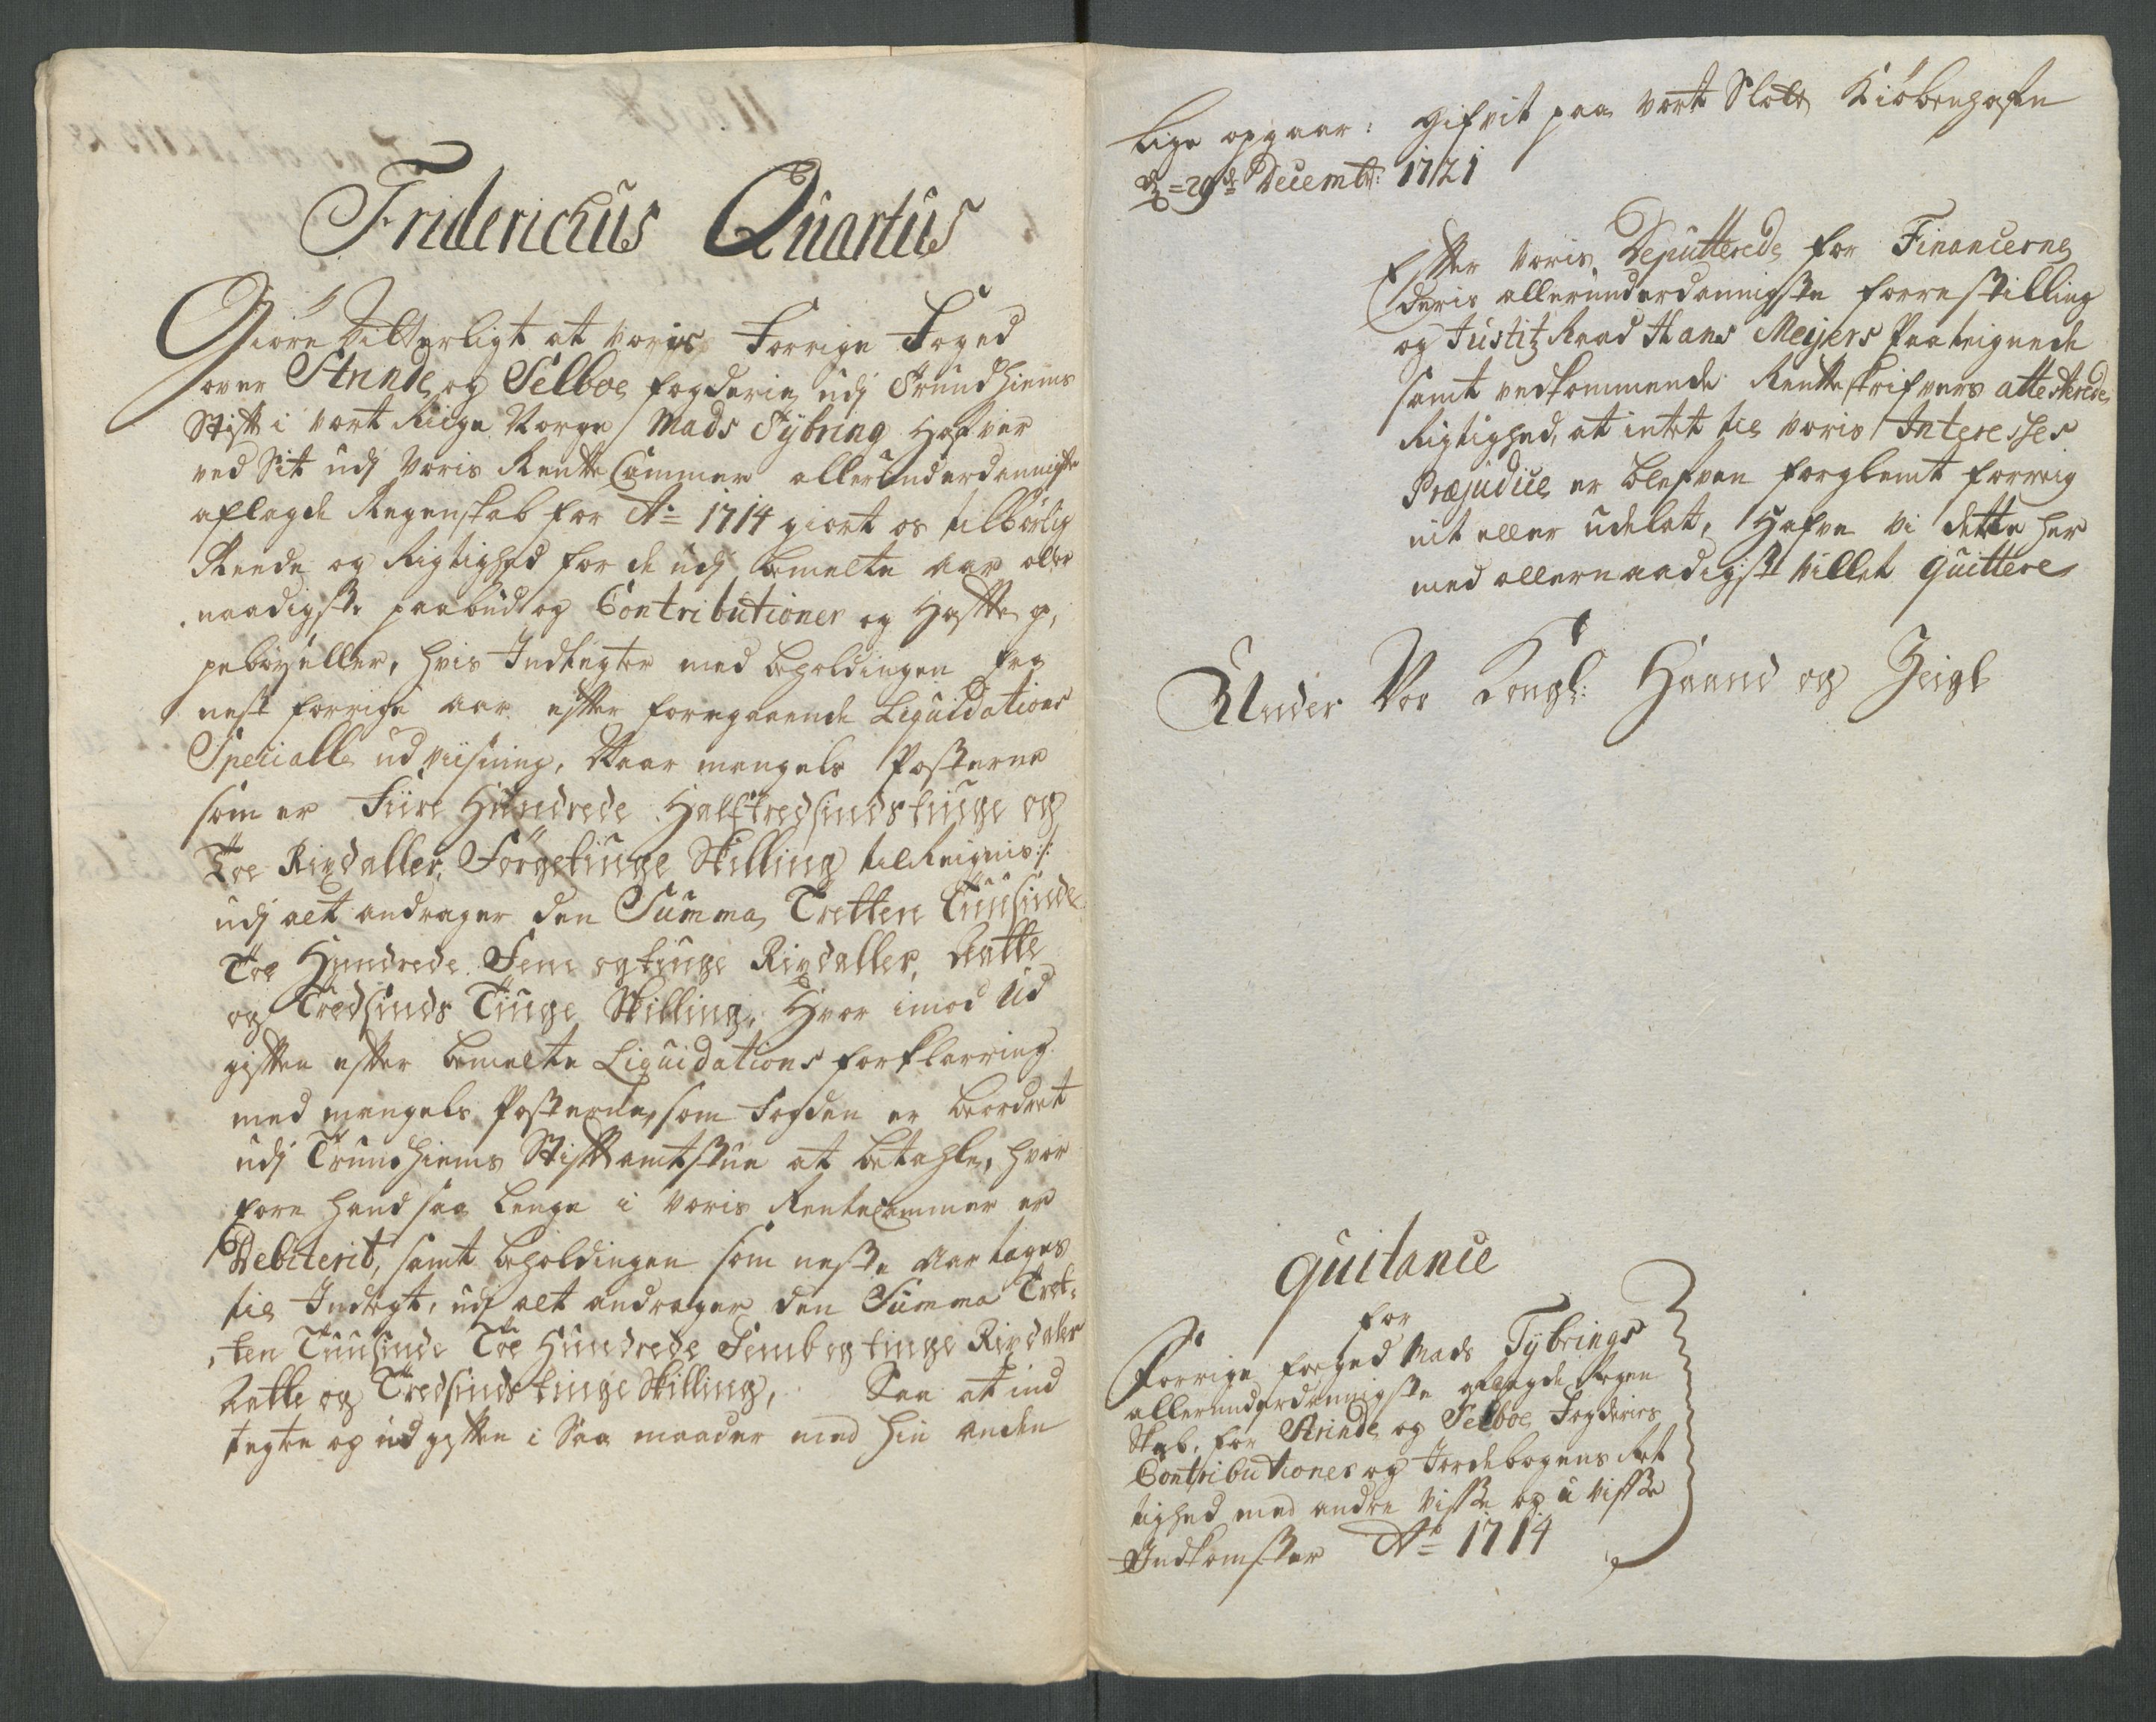 Fridericus Quartus
Giöre Vitterligt at voris Forrige Foged
over Strinde og Selboe fogderie udj Trundhiems
Stift i vort Riige Norge Mads Tÿbring Hafver
ved Sit udj Voris RenteCammer allerunderdannigste
aflagde Regenskab for Aō 1714 giort os tilbørlig
Reede og Rigtighed for de udj bemelte Aar aller
naadigste paabudtog Contributioner og
hvis Indtegter med beholdingen fra
nest forrige Aar efter foregaaende Liquidations
Specialle udviisning, Naar mangels Posterne
som er Fiire Hundrede Halftredsindstiuge og
Toe Rixdaller, Förgetiuge Skilling tilReignis:/:
udj alt andrager den Summa Tretten Tuusinde
Toe Hundrede Fem og tiuge Rixdaller, Aatte
og Tredsinds Tiuge Skilling, Hvor imod Ud
giften efter bemelte Liquidations forklarring
med mangels Posterne, som Fogden er beordret
udj Trundhiems Stiftamtstue at betahle, hvor
fore hand saa lenge i voris RenteCammer er
Debiterit, samt beholdingen som neste Aar tages
til Indtegt, udj alt andrager den Summa Tret-
ten Tuusinde Toe Hundrede Femb og tiuge Rixdaler
Aatte og Tredsinds tiuge Skilling, Saa at ind
tegten og udgiften i Saa maader med hin anden
lige opgaar: Gifvit paa vort Slott Kiöbenhafn
d = 29de Decembr: 1721
Efter Voris Deputterede for Financerne
deris allerunderdannigste forrestilling
og Justitz Raad Hans Meÿers Paateignede
samt vedkommende Rentteskrifvers attesterede
Rigtighed, at intet til voris Interesses
Præjudice er blefven forglemt forreig
nit eller udelat, Hafve Vi dette her
med allernaadigst villet quittere
Under Vor Kongl: Haand og Zeigl
quitance
for
Forrige foeged Mads Tÿbrings
allerunderdannigste aflagde Regen
Skab, for Strinde og Selboe Fogderies
Contributioner og Jordebogens Ret
tighed med andre Visse og u Visse
Indkomster Aō 1714